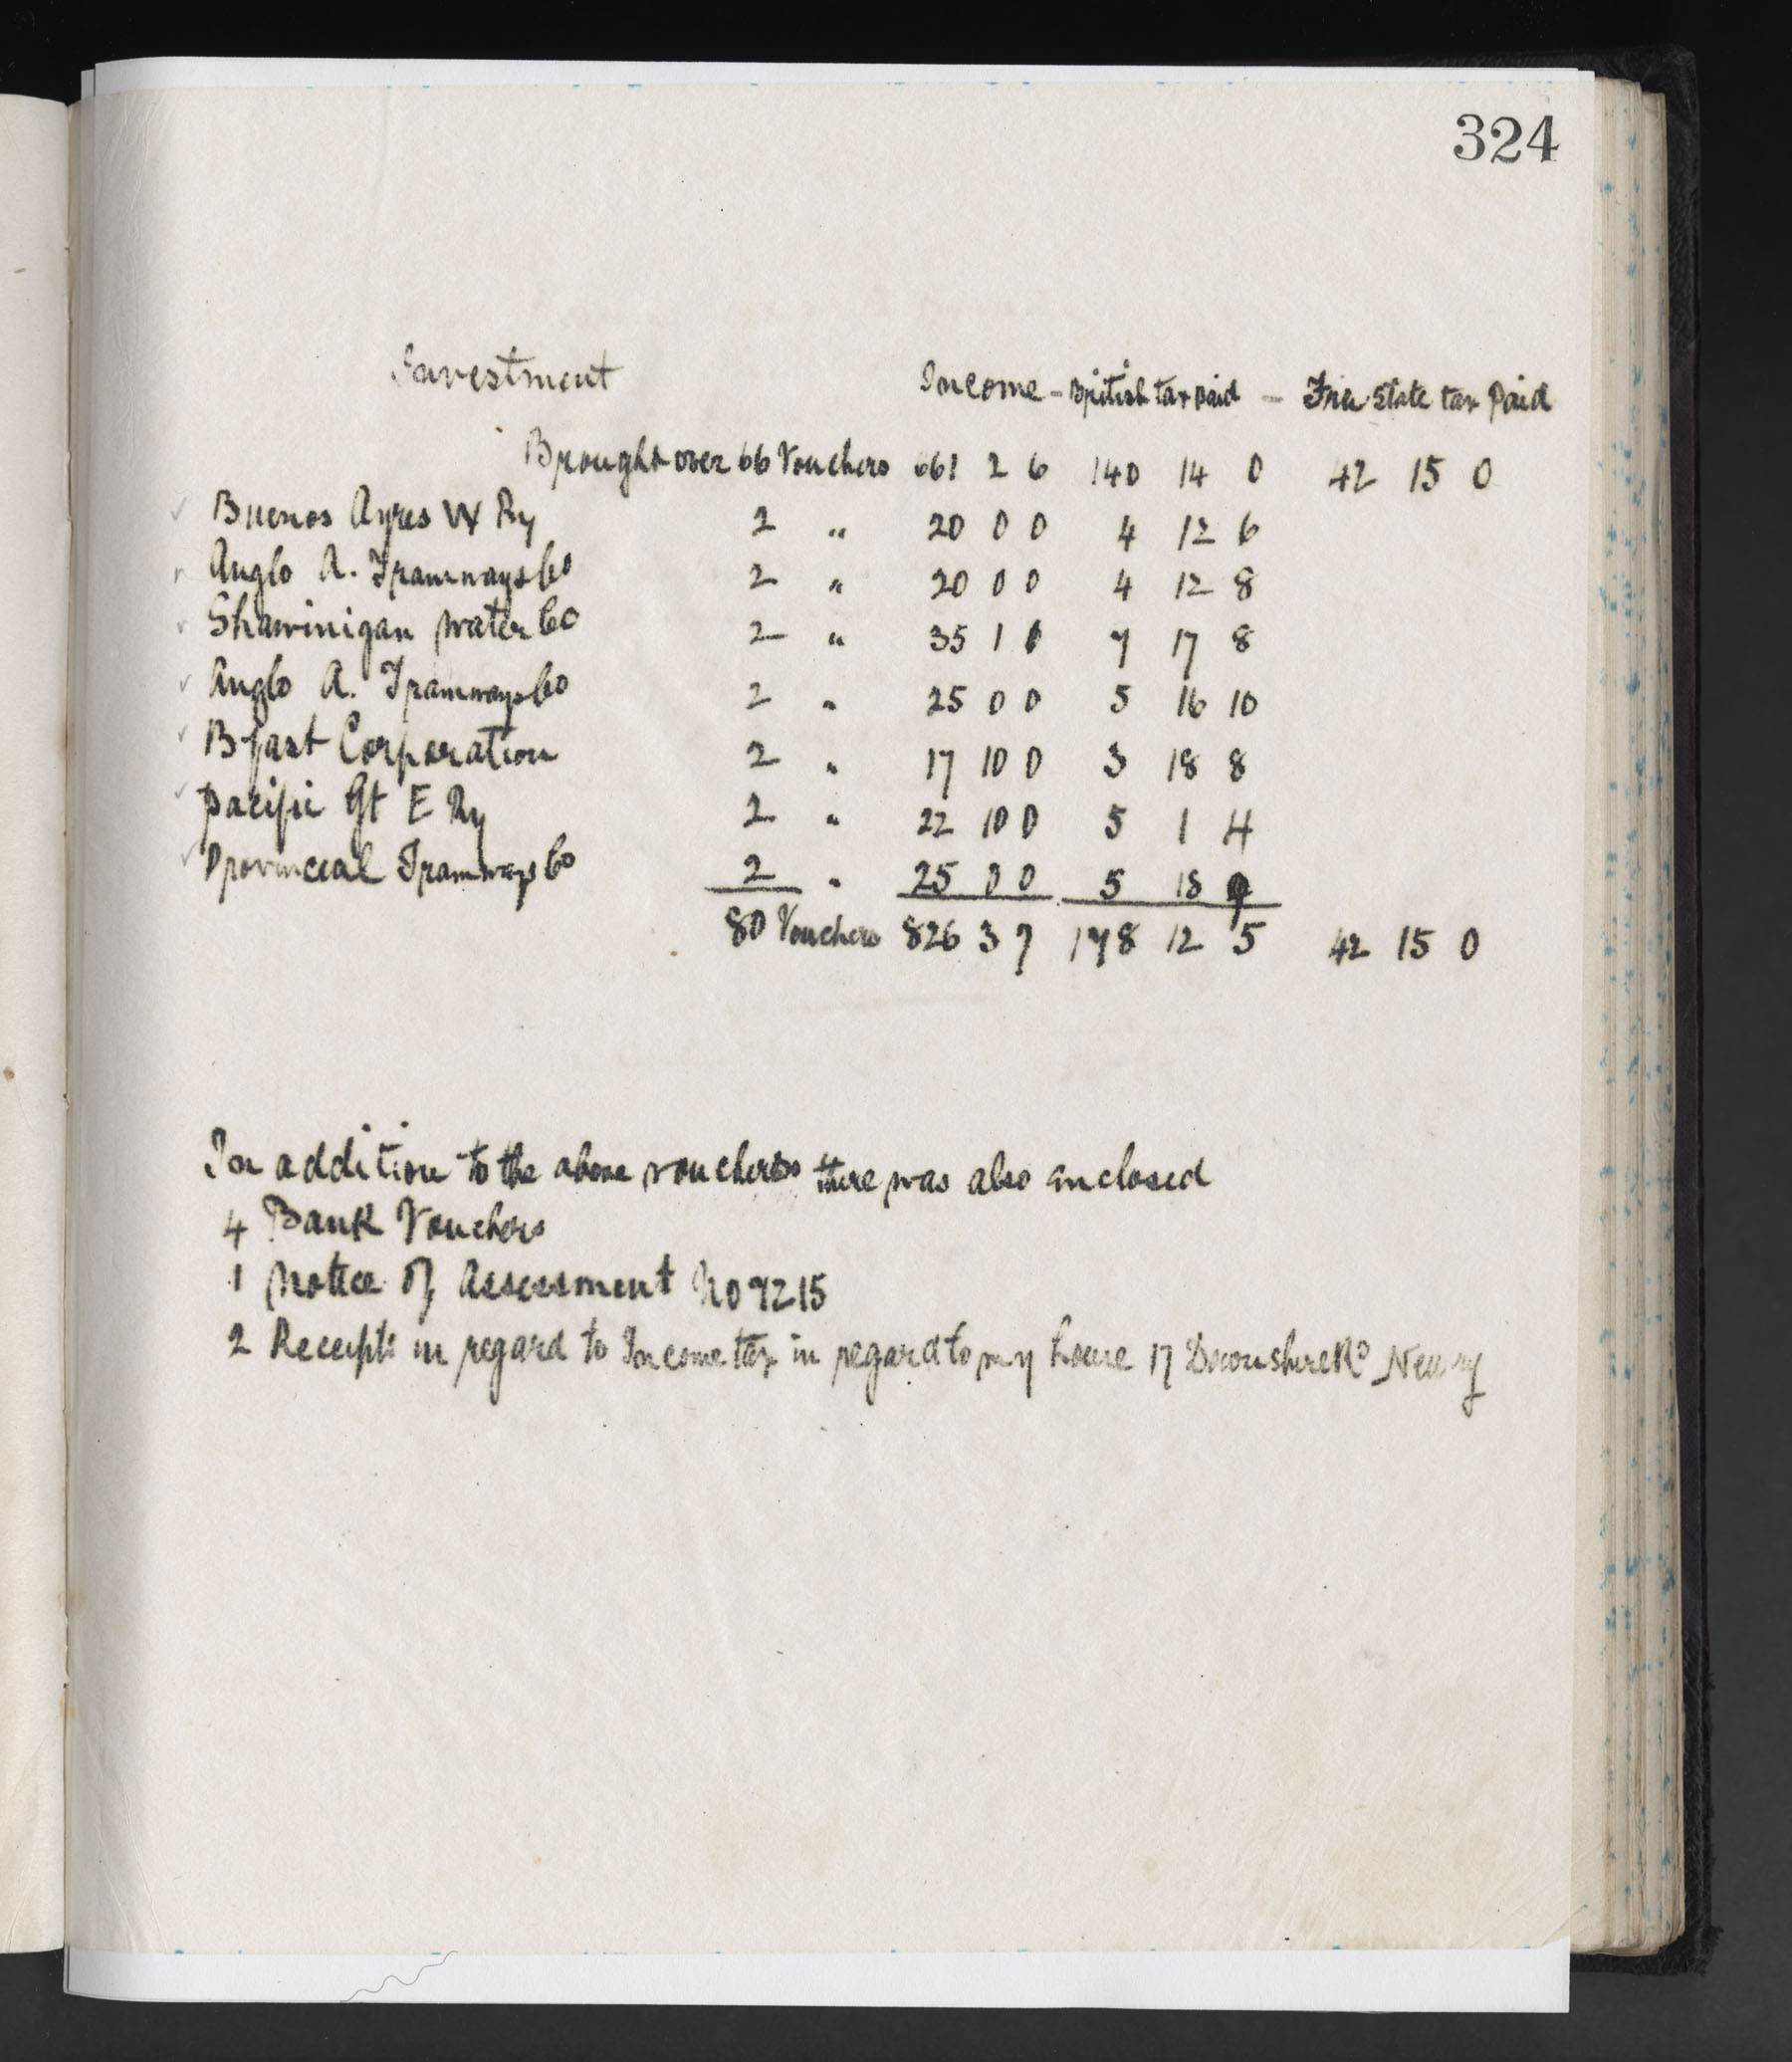 324
Investment Income - British tax paid - Free State tax Paid
Brought over 66 Vouchers 661 2 6 140 14 0 42 15 0
Buenos Ayres W Ry 2 " 20 0 0 4 12 6
Anglo A. Tramways Co 2 " 20 0 0 4 12 8
Shawinigan Water Co 2 " 35 1 7 17 8
Anglo A. Tramways Co 2 " 25 0 0 5 16 10
Bfast Corporation 2 " 17 10 0 3 18 8
Pacific Gt E Ry 2 " 22 10 0 5 1 4
Provincial Tramways Co 2 " 25 0 0 5 18 9
80 Vouchers 826 3 7 178 12 5 42 15 0
In addition to the above vouchers there was also enclosed
4 Bank Vouchers
1 Notice of Assessment No 7215
2 Receipts in regard to Income tax in regard to my house 17 Devonshire Rd Newry